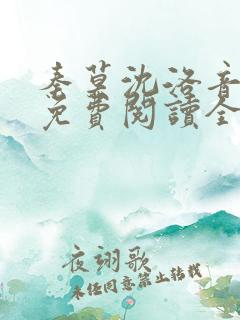 秦草沈洛音
免費閱讀全
夜翊歌
未经同意禁止转载